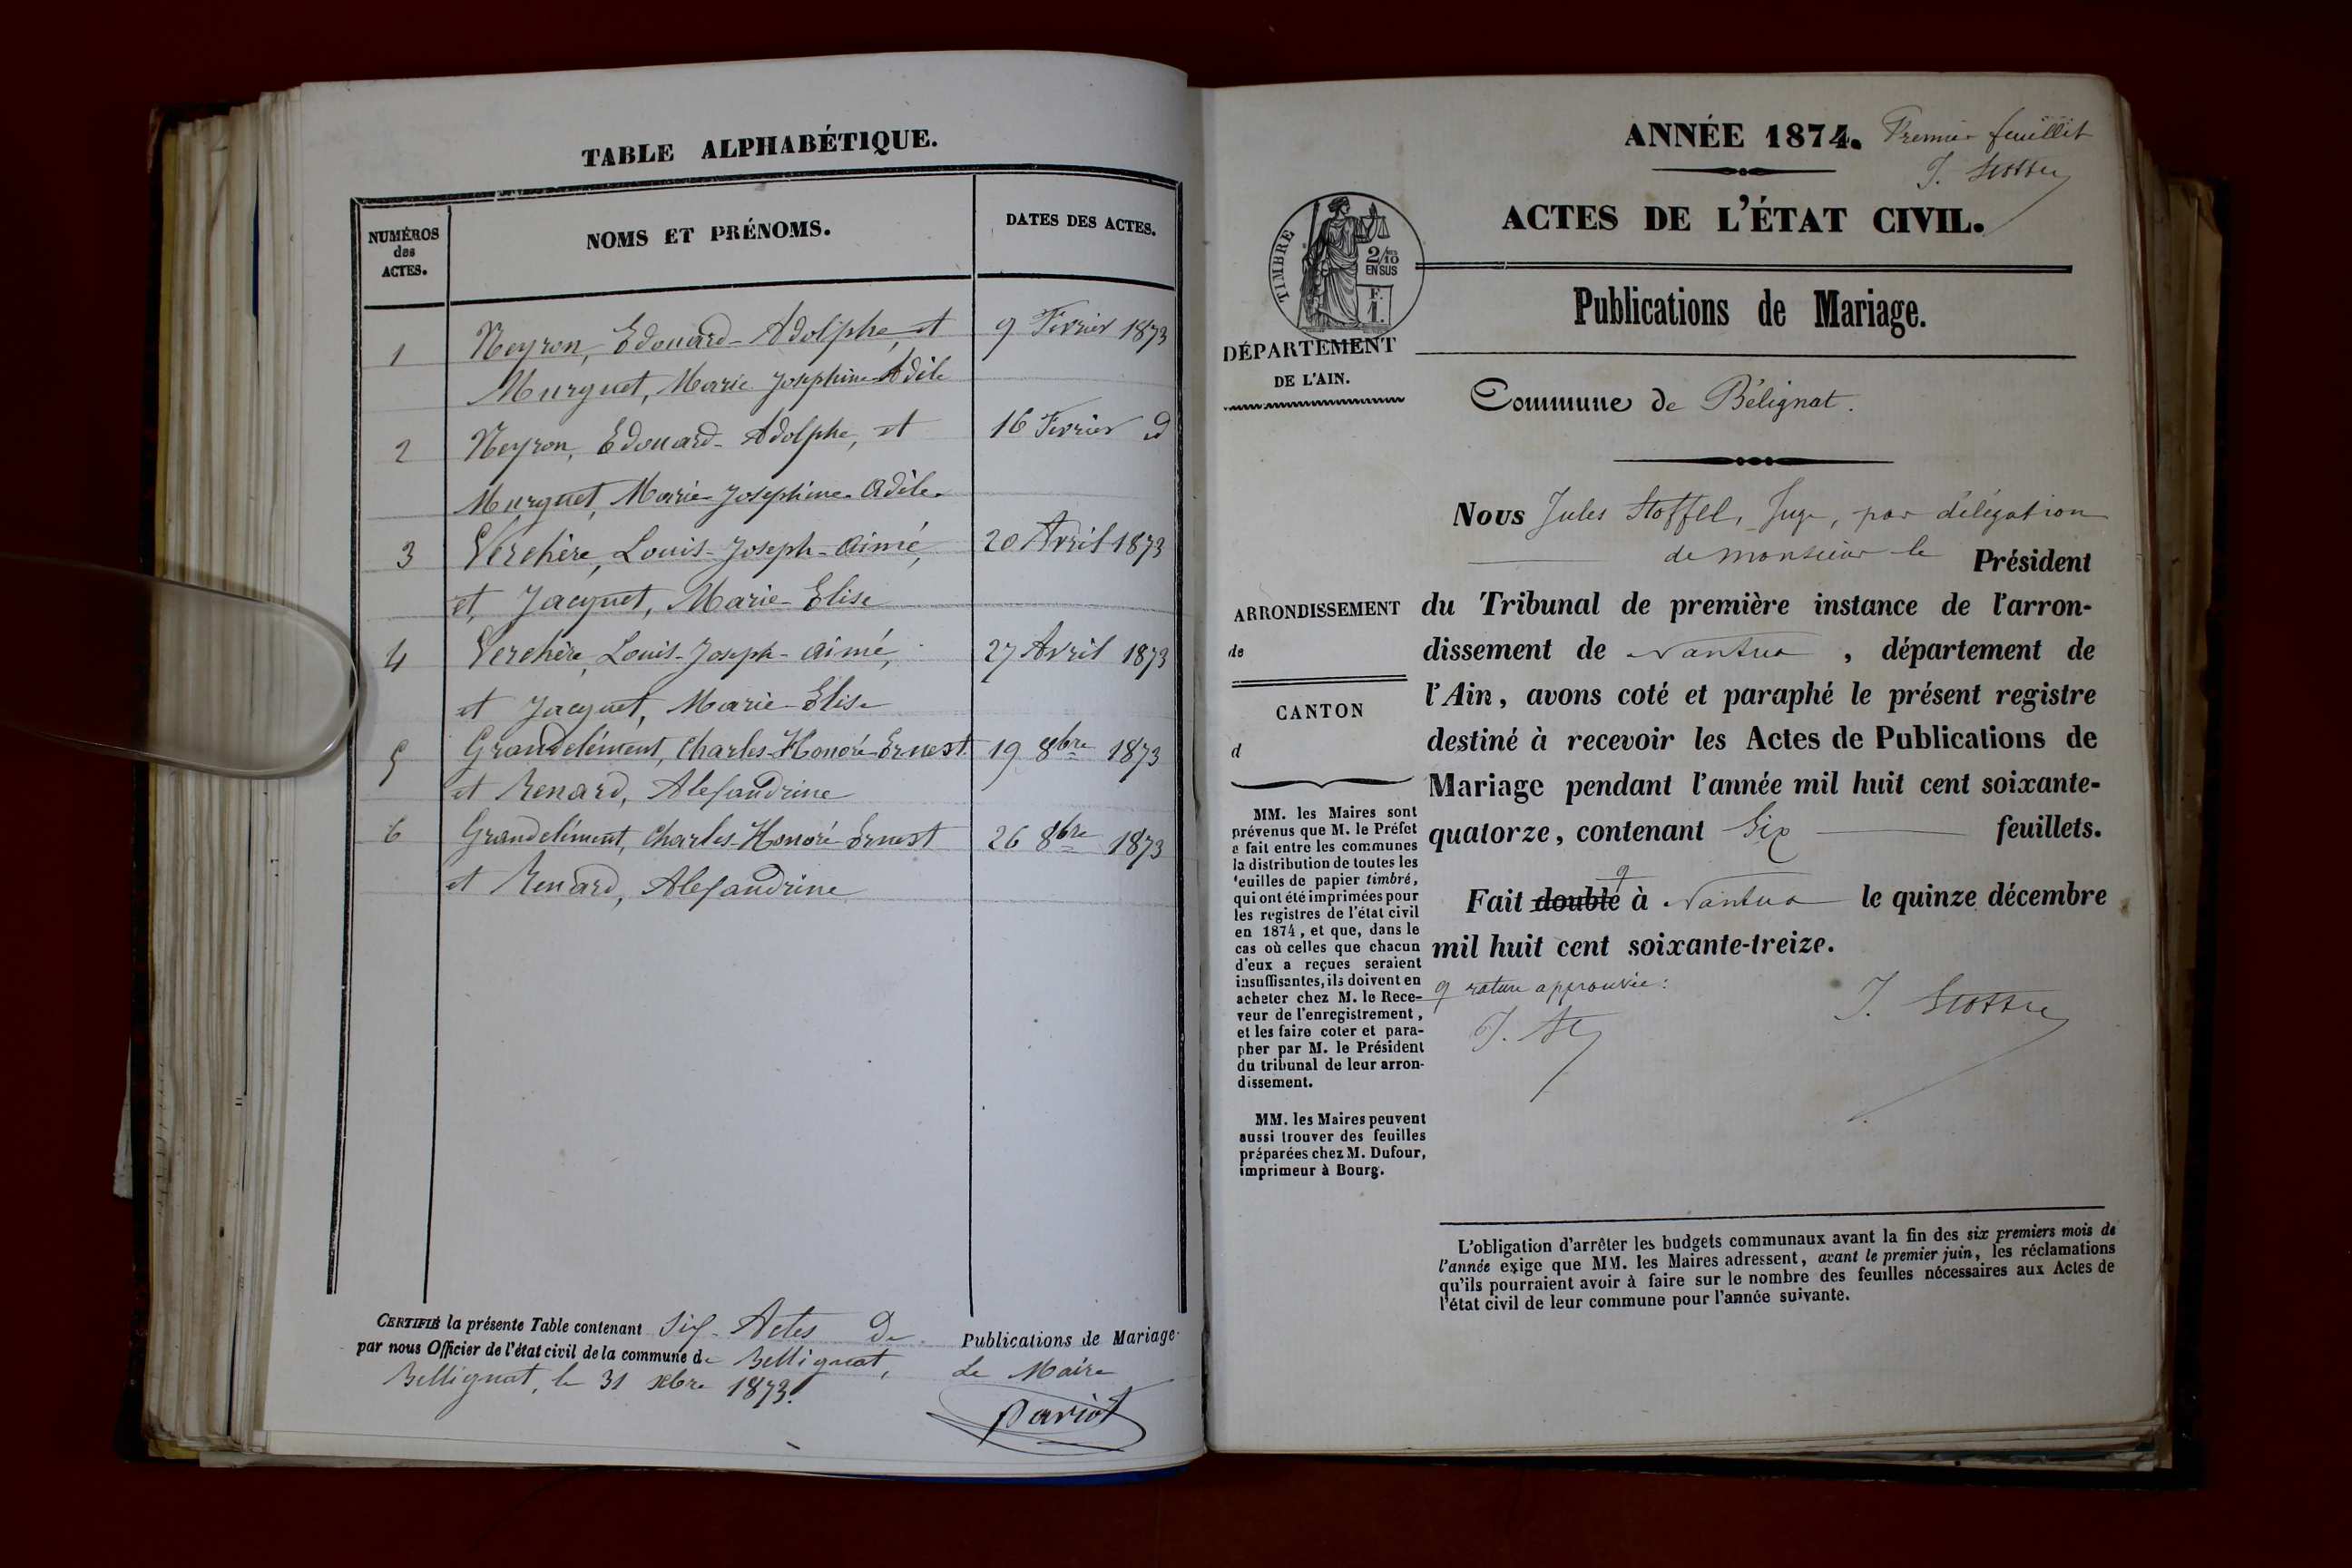 TABLE ALPHABÉTIQUE.
NUMÉROS
des
ACTES.
NOMS ET PRÉNOMS.
DATES DES ACTES.
1 Neyron, Edouard-Adolphe, et 9 Fevrier 1873
Murguet, Marie Josephine Adèle
2 Neyron, Edouard-Adolphe, et 16 Fevrier d
Murguet, Marie-Josephine-Adèle
3 Verchère, Louis-Joseph-Aimé, 20 Avril 1873
et Jacquet, Marie-Elise
4 Verchère, Louis-Joseph-Aimé, 27 Avril 1873
et Jacquet, Marie-Elise
5 Grandclément, Charles-Honoré-Ernest 19 8bre 1873
et Renard, Alexandrine
6 Grandclément, Charles-Honoré-Ernest 26 8bre 1873
et Renard, Alexandrine
CERTIFIÉ la présente Table contenant Six Actes de Publications de Mariage
par nous Officier de l'état civil de la commune de Bellignat,
Bellignat, le 31 Xbre 1873.
Le Maire
Pariot
ANNÉE 1874. Premier feuillet
J. Stoffel
ACTES DE L'ÉTAT CIVIL.
TIMBRE
2/10
EN SUS
F.
1.
Publications de Mariage.
DÉPARTEMENT
DE L'AIN.
Commune de Bélignat.
Nous Jules Stoffel, Juge, par délégation
de monsieur le Président
du Tribunal de première instance de l'arron-
dissement de Nantua, département de
l'Ain, avons coté et paraphé le présent registre
destiné à recevoir les Actes de Publications de
Mariage pendant l'année mil huit cent soixante-
quatorze, contenant Six feuillets.
Fait double à Nantua le quinze décembre
mil huit cent soixante-treize.
rature approuvée:
J. St
J. Stoffel
ARRONDISSEMENT
de
CANTON
d
MM. les Maires sont
prévenus que M. le Préfet
a fait entre les communes
la distribution de toutes les
feuilles de papier timbré,
qui ont été imprimées pour
les registres de l'état civil
en 1874, et que, dans le
cas où celles que chacun
d'eux a reçues seraient
insuffisantes, ils doivent en
acheter chez M. le Rece-
veur de l'enregistrement,
et les faire coter et para-
pher par M. le Président
du tribunal de leur arron-
dissement.
MM. les Maires peuvent
aussi trouver des feuilles
préparées chez M. Dufour,
imprimeur à Bourg.
L'obligation d'arrêter les budgets communaux avant la fin des six premiers mois de
l'année exige que MM. les Maires adressent, avant le premier juin, les réclamations
qu'ils pourraient avoir à faire sur le nombre des feuilles nécessaires aux Actes de
l'état civil de leur commune pour l'année suivante.